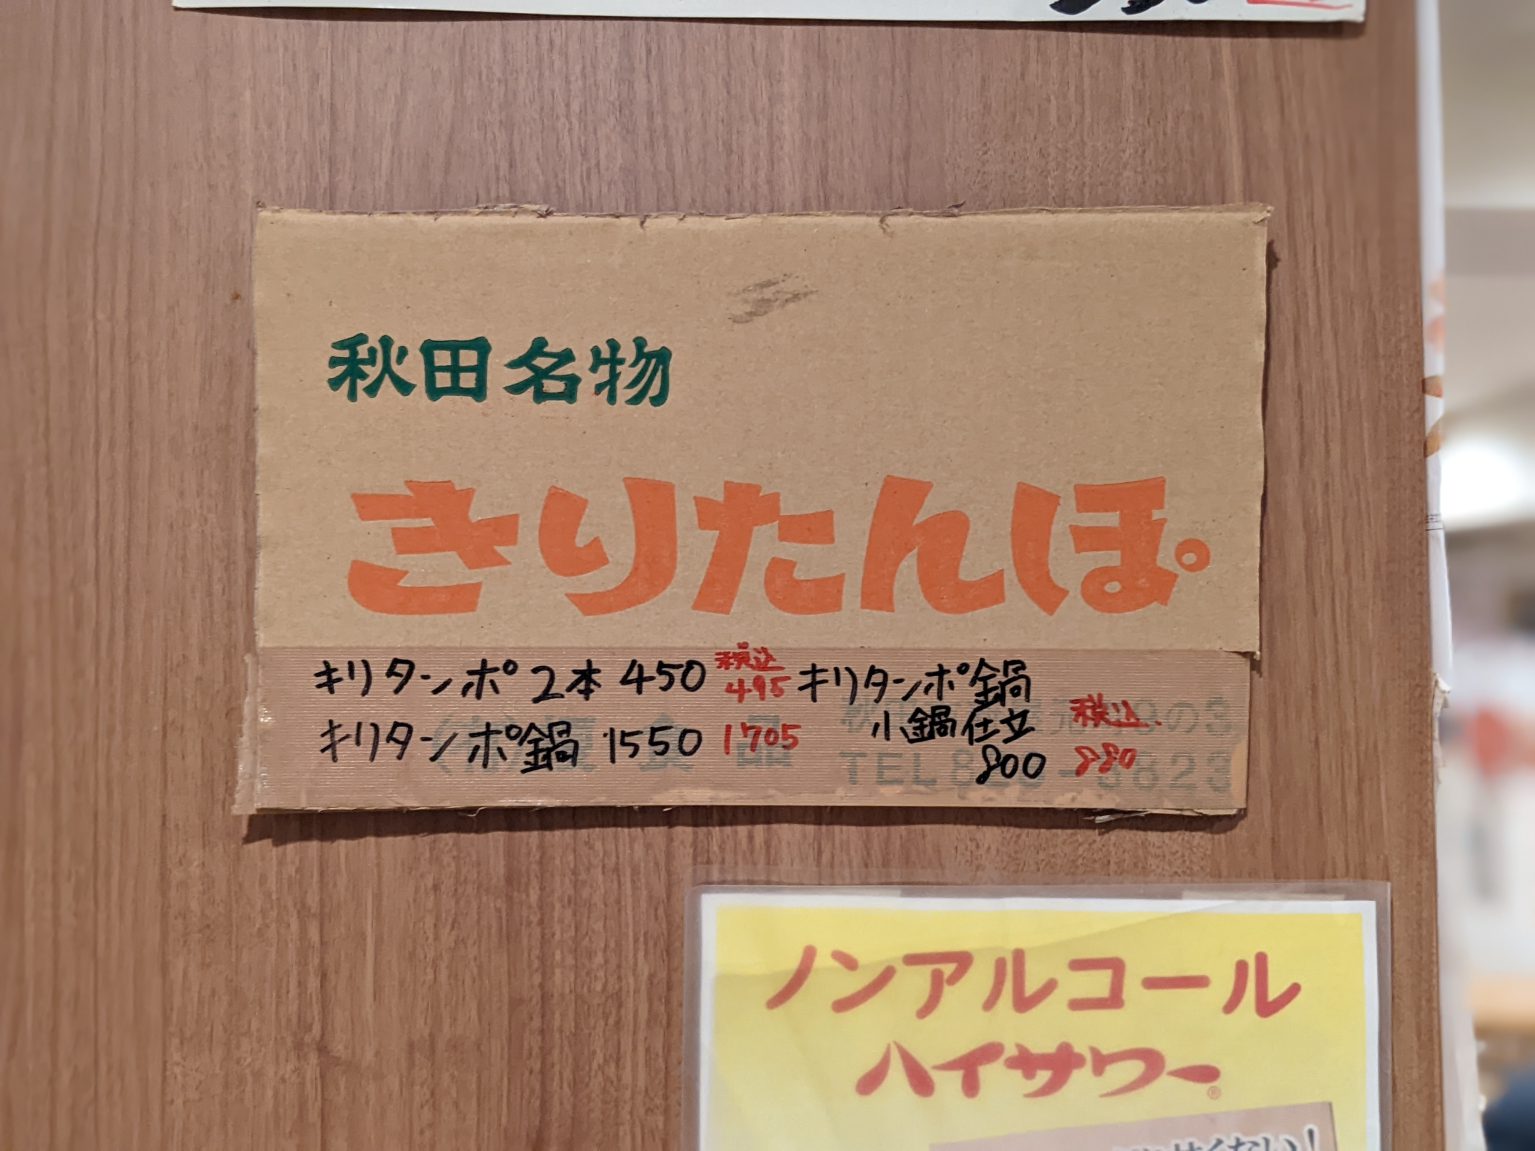 秋田名物
きりたんぽ
キリタンポ 2本 450 税込 495
キリタンポ鍋 1550 1705
キリタンポ鍋
小鍋仕立
800 税込 880
の3
TEL 8
3823
食品
ノンアルコール
ハイサワー®